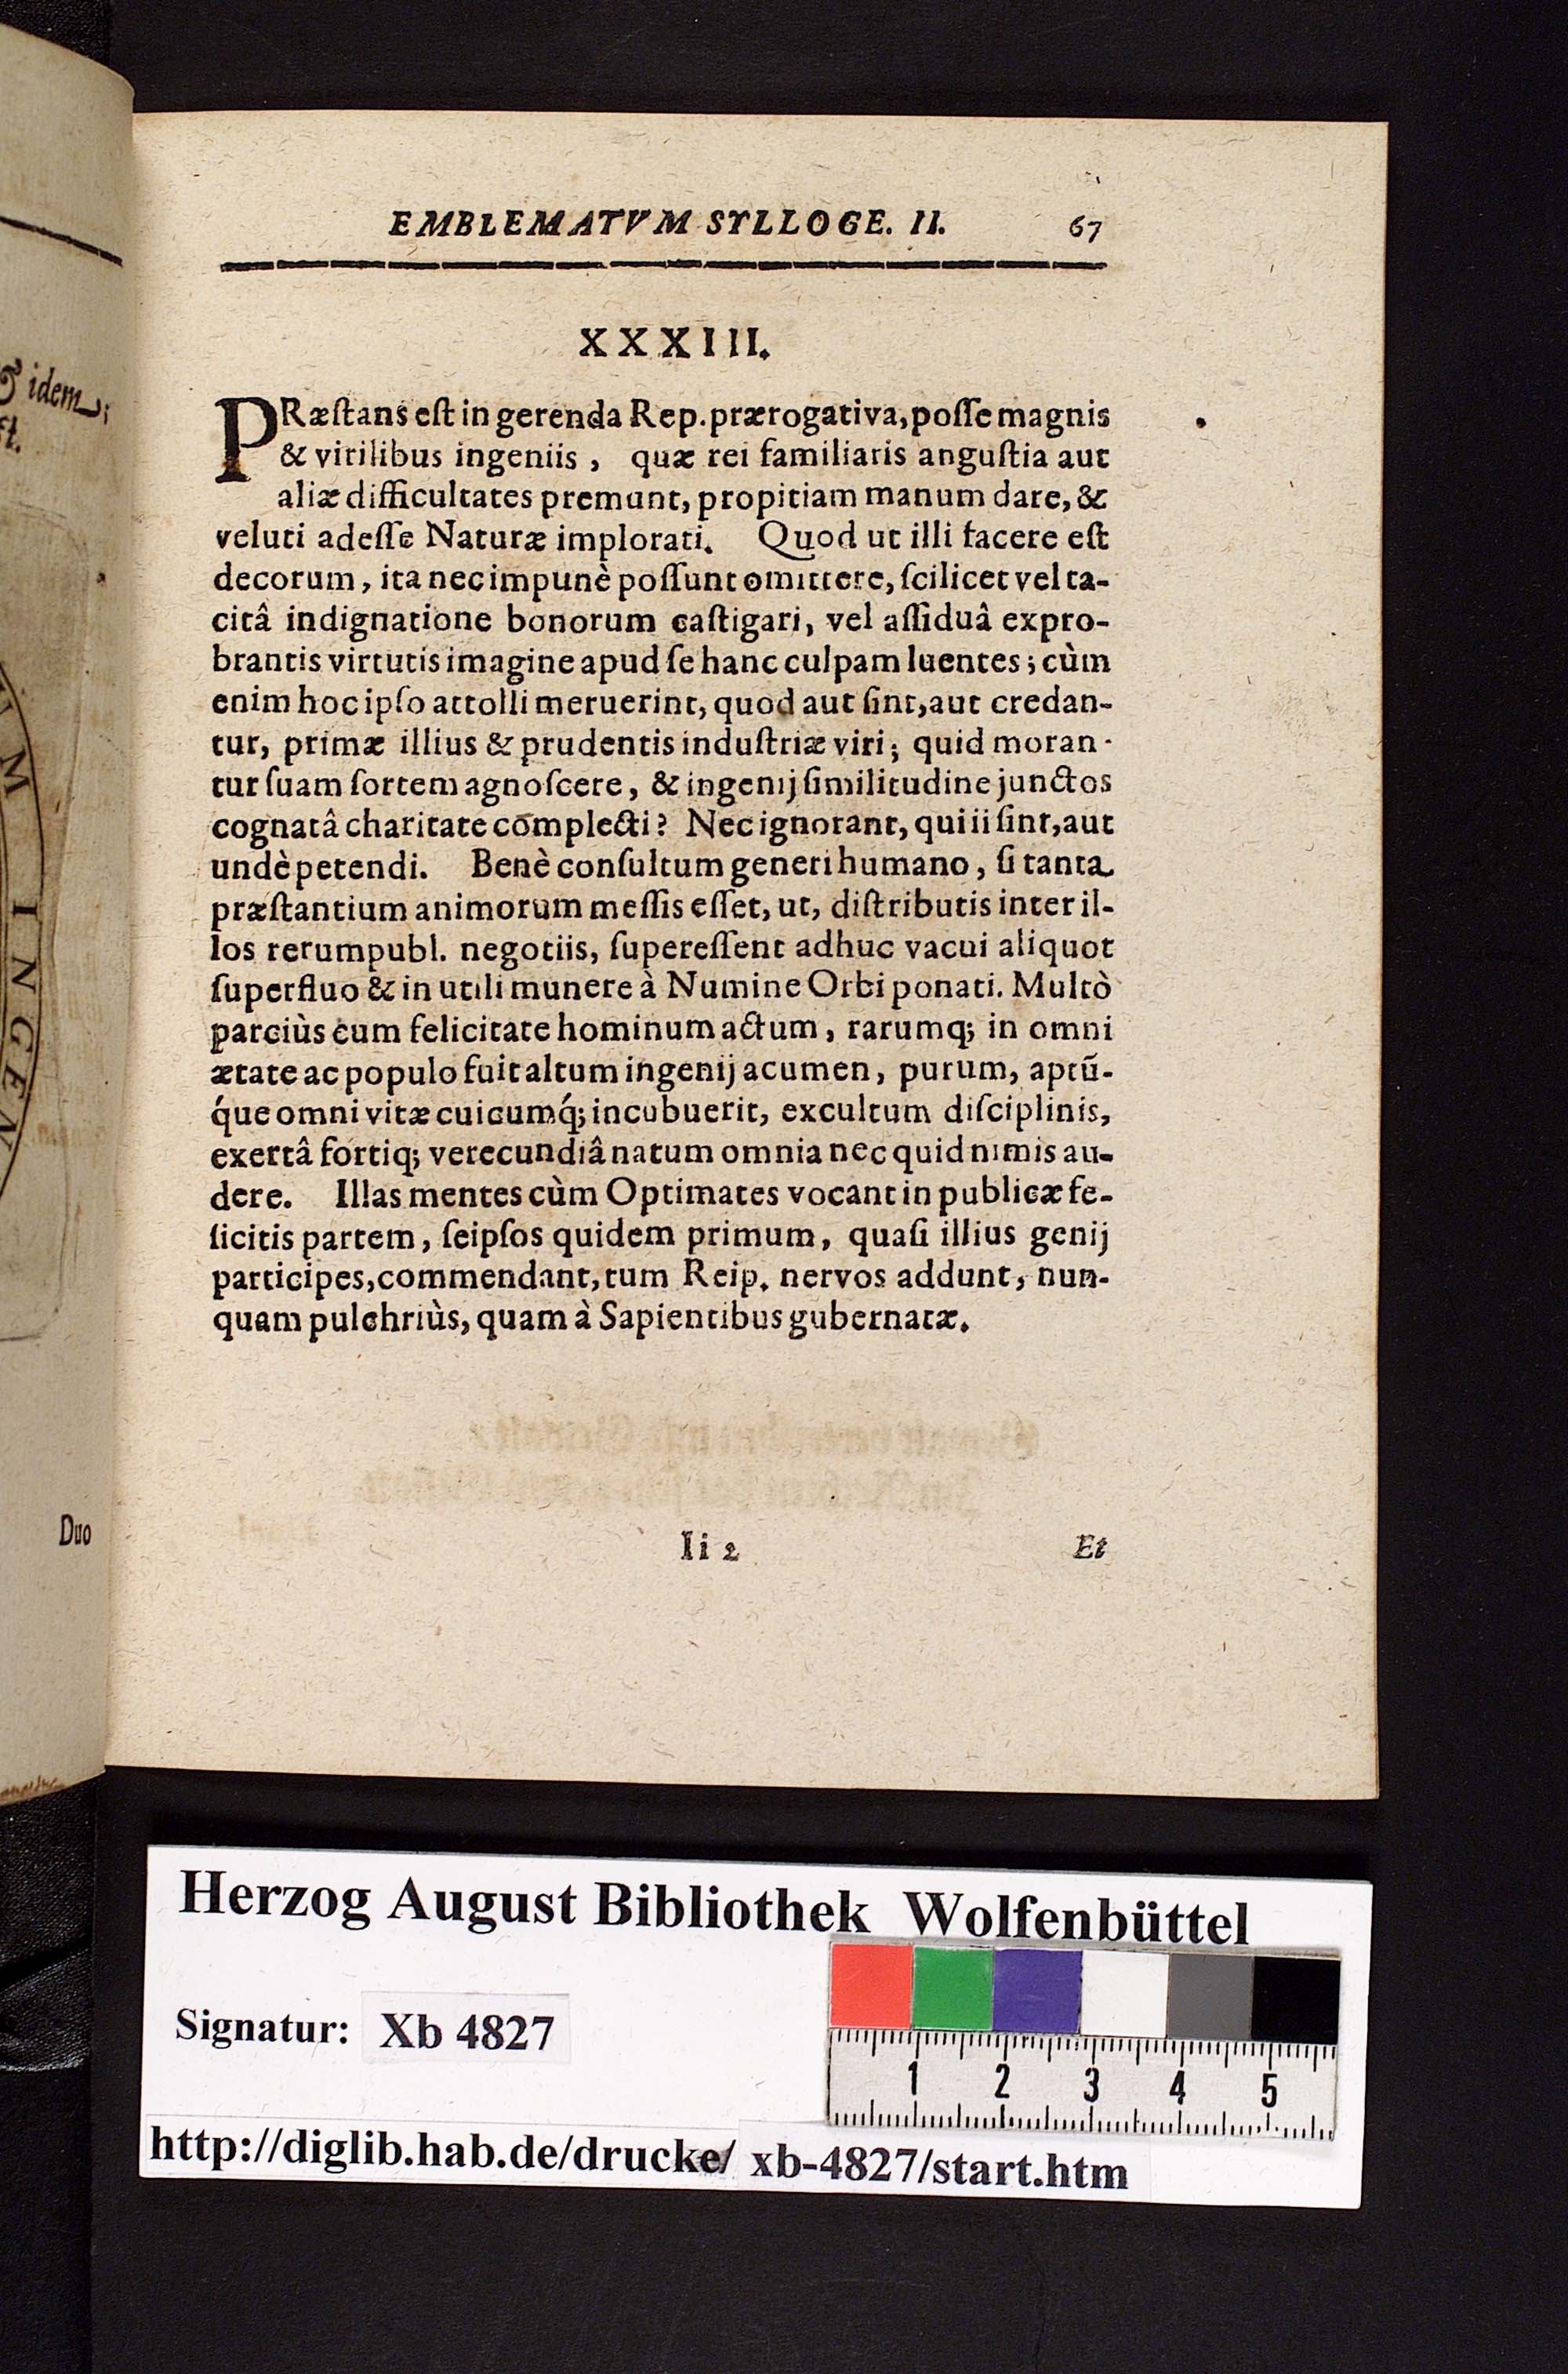 EMBLEMATVM SYLLOGE. II. 67
XXXIII.
PRæſtans eſt in gerenda Rep. prærogativa, poſſe magnis
& virilibus ingeniis, quæ rei familiaris anguſtia aut
aliæ difficultates premunt, propitiam manum dare, &
veluti adeſſe Naturæ implorati. Quod ut illi facere eſt
decorum, ita nec impunè poſſunt omittere, ſcilicet vel ta-
citâ indignatione bonorum caſtigari, vel aſſiduâ expro-
brantis virtutis imagine apud ſe hanc culpam luentes; cùm
enim hoc ipſo attolli meruerint, quod aut ſint, aut credan-
tur, primæ illius & prudentis induſtriæ viri; quid moran-
tur ſuam ſortem agnoſcere, & ingenij ſimilitudine junctos
cognatâ charitate complecti? Nec ignorant, qui ii ſint, aut
undè petendi. Benè conſultum generi humano, ſi tanta
præſtantium animorum meſſis eſſet, ut, diſtributis inter il-
los rerumpubl. negotiis, ſupereſſent adhuc vacui aliquot
ſuperfluo & in utili munere à Numine Orbi ponati. Multò
parciùs cum felicitate hominum actum, rarumq; in omni
ætate ac populo fuit altum ingenij acumen, purum, aptũ-
q́ue omni vitæ cuicumq́; incubuerit, excultum diſciplinis,
exertâ fortiq; verecundiâ natum omnia nec quid nimis au-
dere. Illas mentes cùm Optimates vocant in publicæ fe-
licitis partem, ſeipſos quidem primum, quaſi illius genij
participes, commendant, tum Reip. nervos addunt, nun-
quam pulchriùs, quam à Sapientibus gubernatæ.
Ii 2 Et
idem;
Duo
M INGEN
Herzog August Bibliothek Wolfenbüttel
Signatur: Xb 4827
1 2 3 4 5
http://diglib.hab.de/drucke/ xb-4827/start.htm